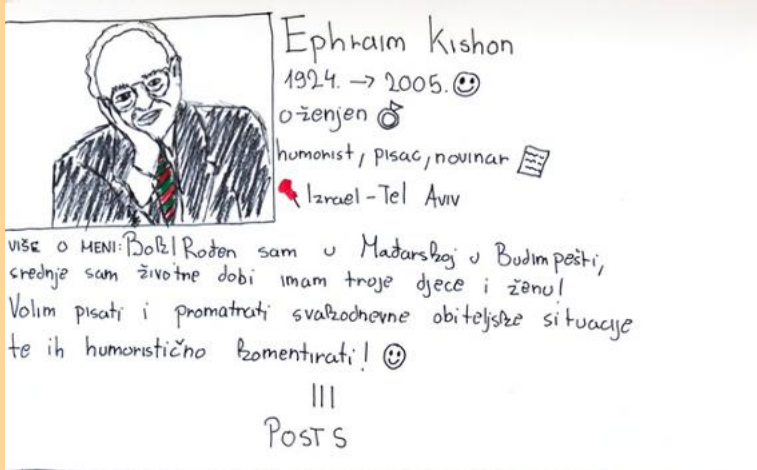 Ephraim Kishon
1924. → 2005. ☺
oženjen
humorist, pisac, novinar
Izrael - Tel Aviv
VIŠE O MENI: Bok! Rođen sam u Mađarskoj u Budimpešti,
srednje sam životne dobi imam troje djece i ženu!
Volim pisati i promatrati svakodnevne obiteljske situacije
te ih humoristično komentirati! ☺
POSTS